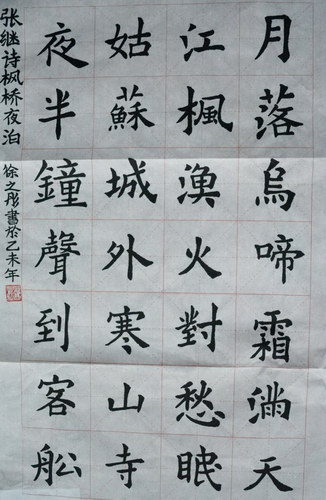 月落烏啼霜滿天
江楓漁火對愁眠
姑蘇城外寒山寺
夜半鐘聲到客船
张继诗枫桥夜泊
徐之彤書於乙未年